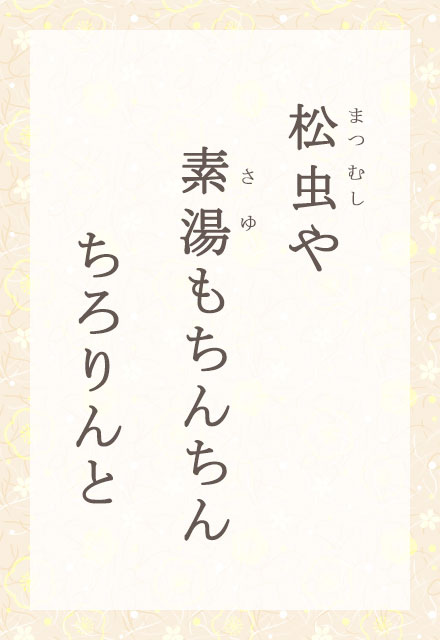 松虫や
素湯もちんちん
ちろりんと
まつむし
さゆ